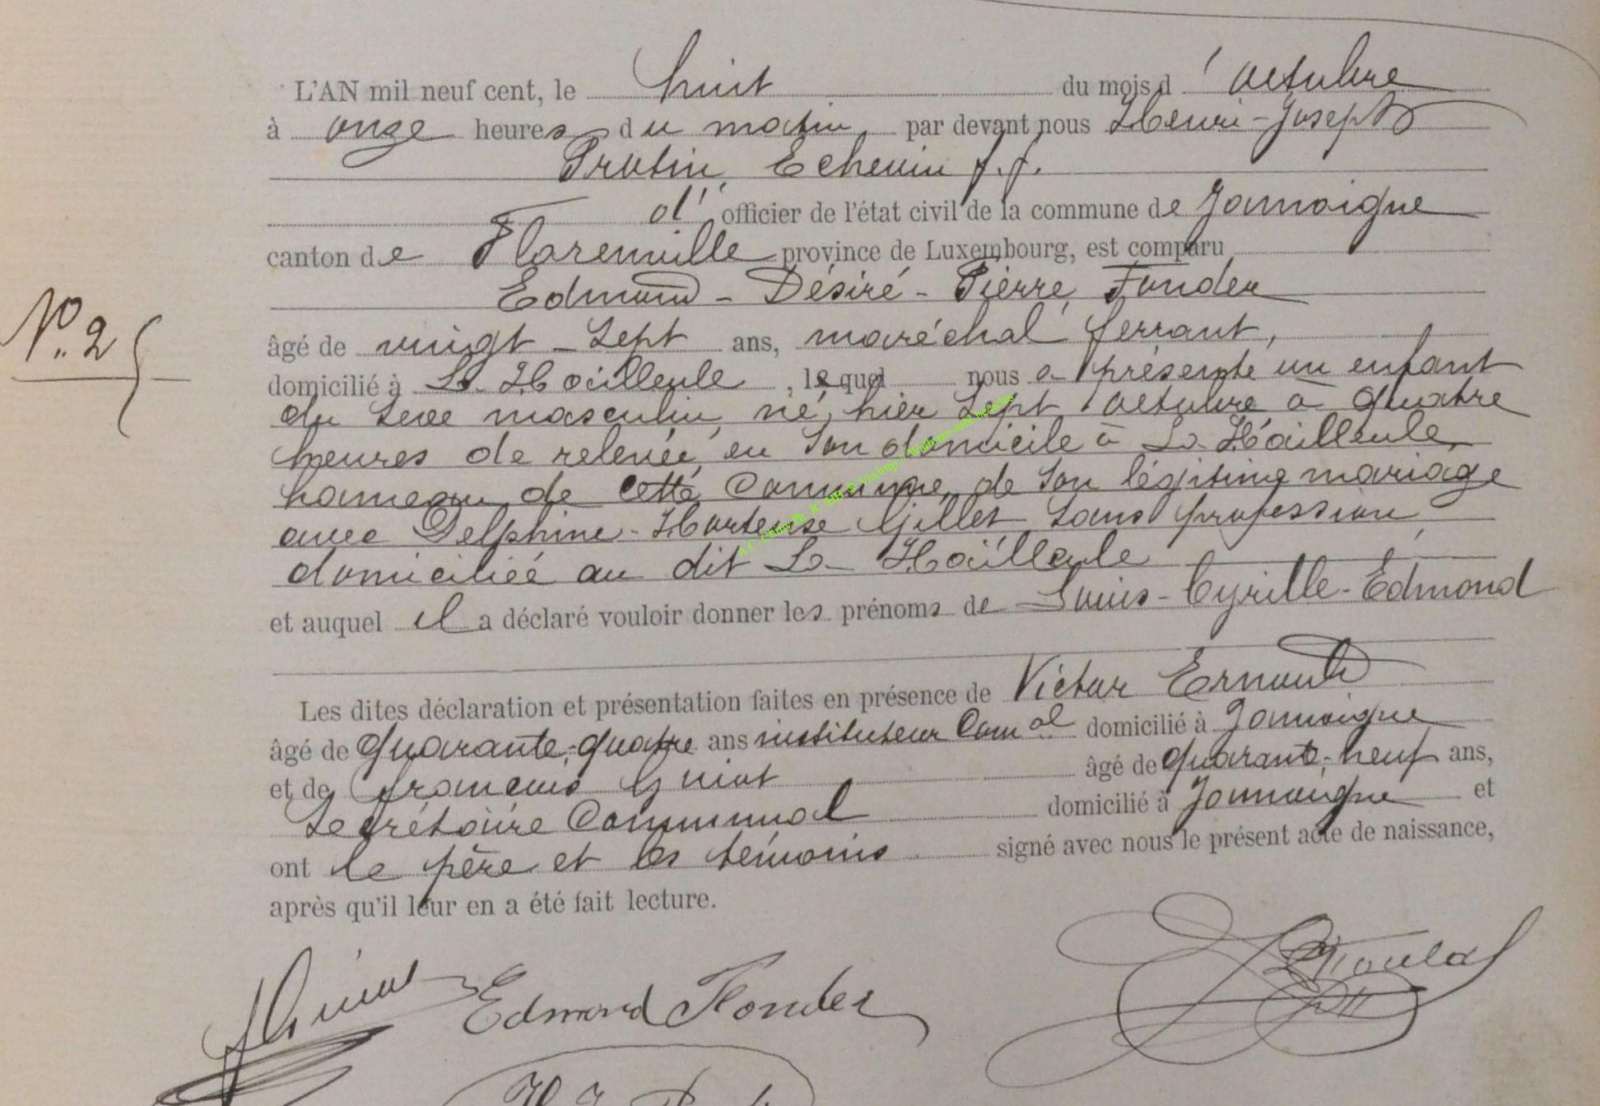 L'AN mil neuf cent, le huit du mois d'octobre
à onze heures du matin, par devant nous Henri-Joseph
Protin, Echevin f.f.
d' officier de l'état civil de la commune de Jamoigne
canton de Florenville province de Luxembourg, est comparu
Edmond-Désiré-Pierre Fonder
N°. 25
âgé de vingt-sept ans, maréchal ferrant,
domicilié à La Hailleule, lequel nous a présenté un enfant
du sexe masculin, né hier sept octobre à quatre
heures de relevée, en son domicile à La Hailleule,
hameau de cette Commune, de son légitime mariage
avec Delphine-Hortense Gillet sans profession,
domiciliée au dit La Hailleule
et auquel il a déclaré vouloir donner les prénoms de Louis-Cyrille-Edmond
Les dites déclaration et présentation faites en présence de Victor
âgé de quarante-quatre ans instituteur Com.al domicilié à Jamoigne
et de françois Guiot âgé de quarante-neuf ans,
Secrétaire Communal domicilié à Jamoigne et
ont le père et les témoins signé avec nous le présent acte de naissance,
après qu'il leur en a été fait lecture.
Edmond Fonder